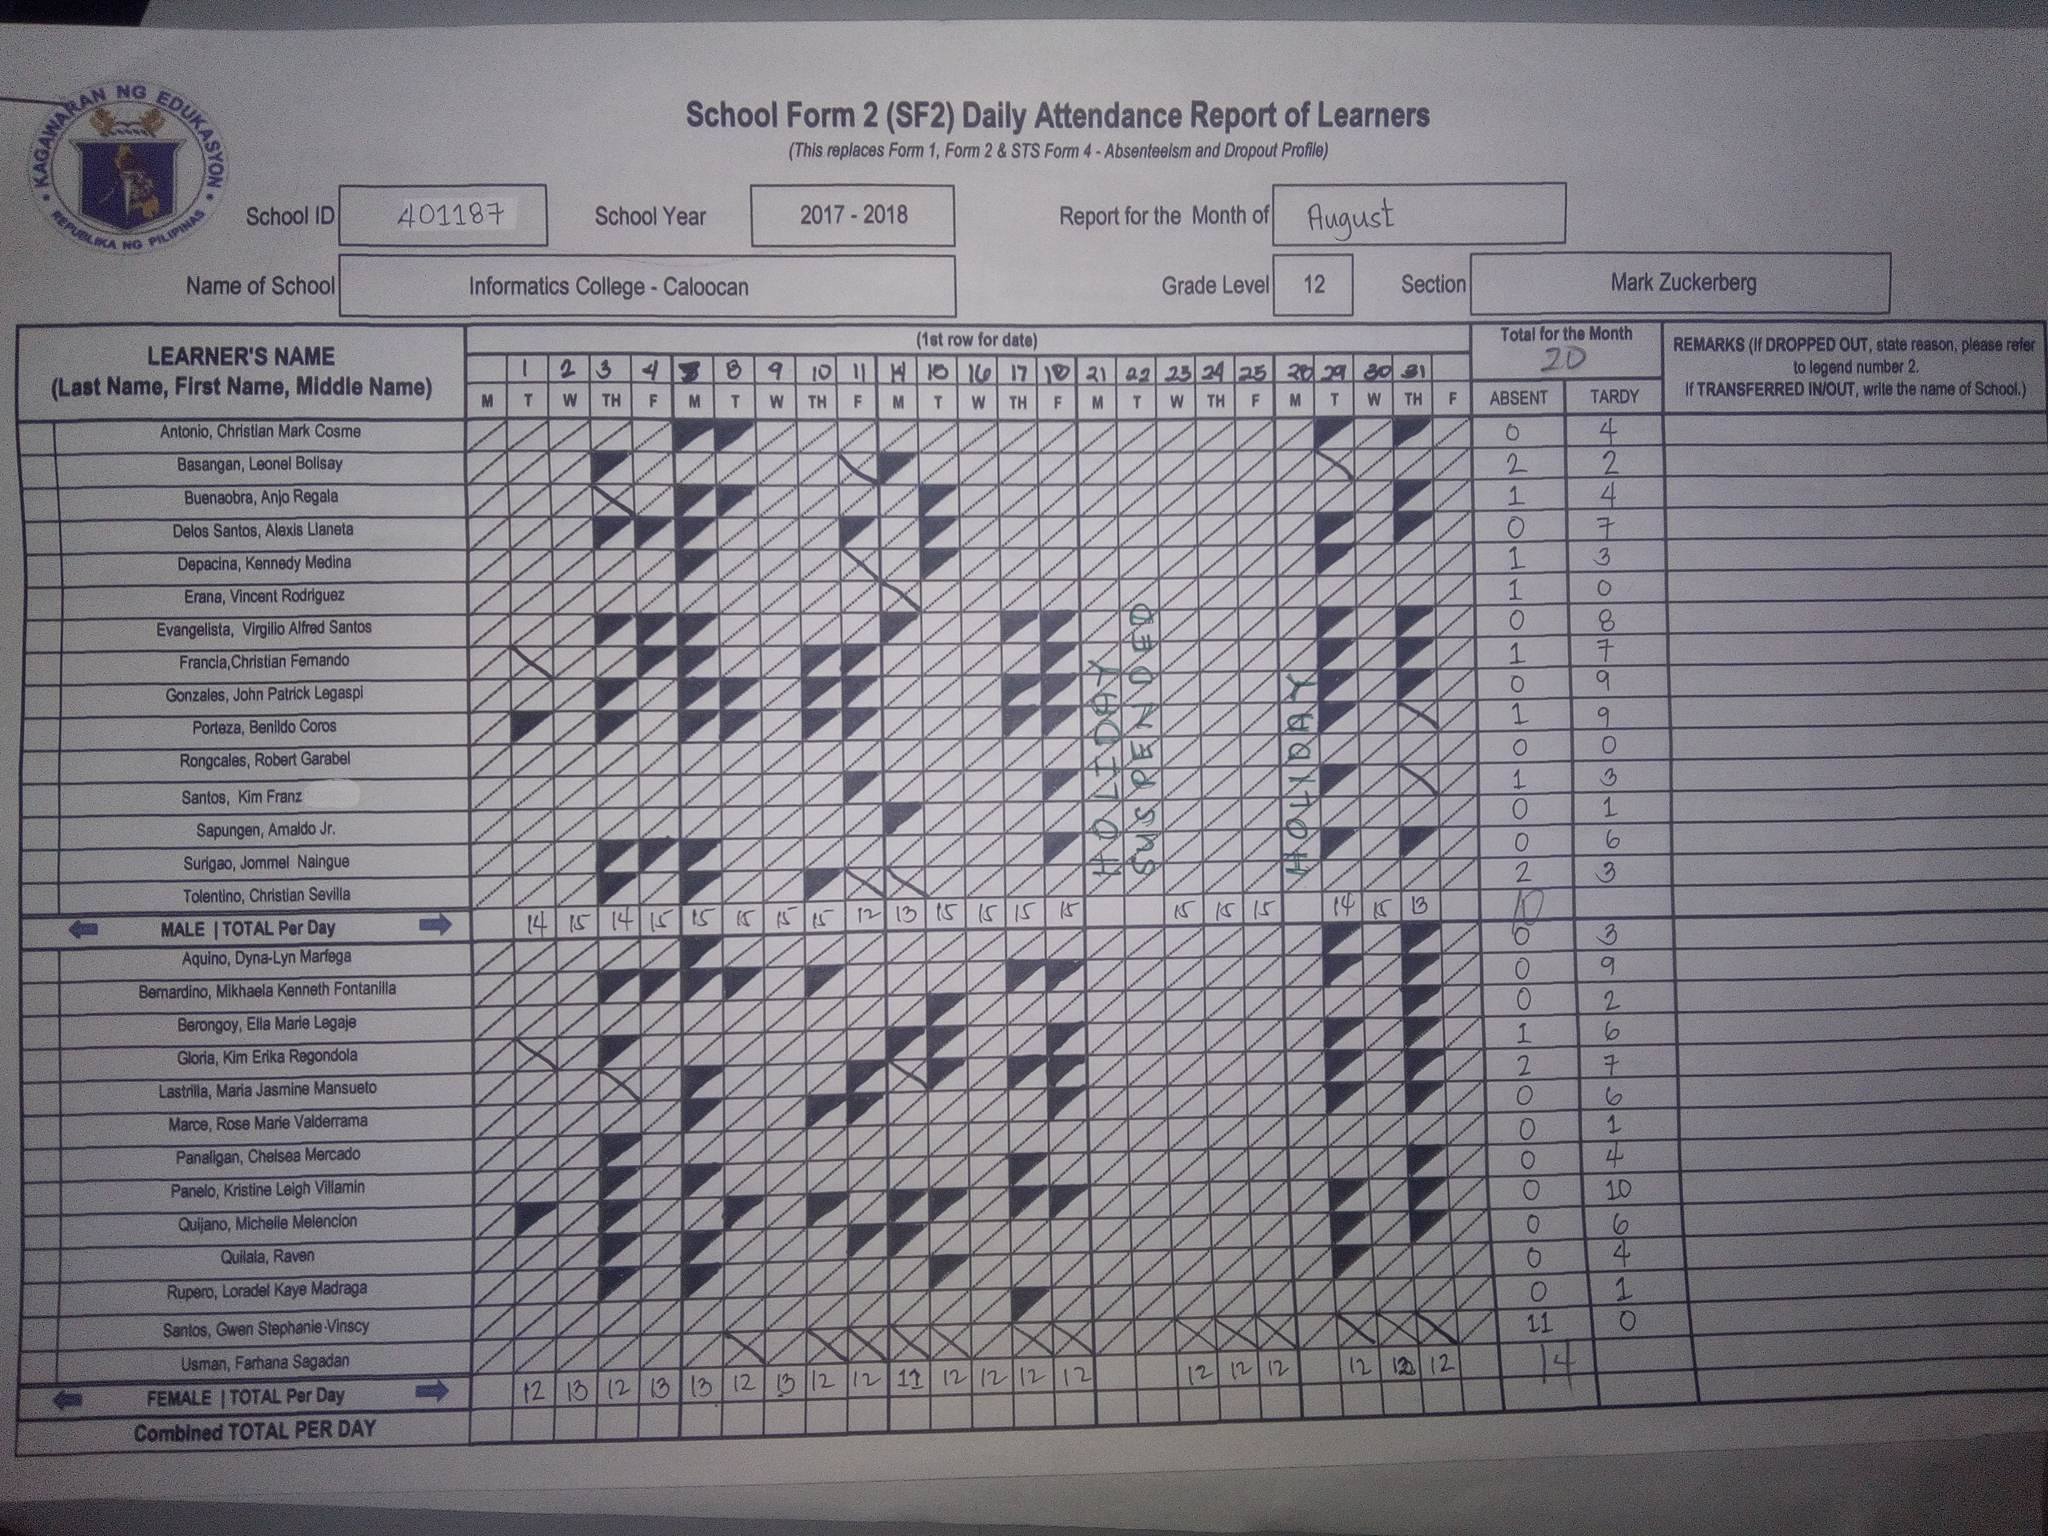 KAGAWARAN NG EDUKASYON
REPUBLIKA NG PILIPINAS
School Form 2 (SF2) Daily Attendance Report of Learners
(This replaces Form 1, Form 2 & STS Form 4 - Absenteeism and Dropout Profile)
School ID 401187 School Year 2017 - 2018 Report for the Month of August
Name of School Informatics College - Caloocan Grade Level 12 Section Mark Zuckerberg
LEARNER'S NAME
(Last Name, First Name, Middle Name)
(1st row for date)
Total for the Month
20
REMARKS (If DROPPED OUT, state reason, please refer
to legend number 2.
If TRANSFERRED IN/OUT, write the name of School.)
1 2 3 4 8 9 10 11 14 16 17 21 22 23 24 25 29 30 31
M T W TH F M T W TH F M T W TH F M T W TH F M T W TH F ABSENT TARDY
Antonio, Christian Mark Cosme 0 4
Basangan, Leonel Bolisay 2 2
Buenaobra, Anjo Regala 1 4
Delos Santos, Alexis Llaneta 0 7
Depacina, Kennedy Medina 1 3
Erana, Vincent Rodriguez 1 0
Evangelista, Virgilio Alfred Santos 0 8
Francia,Christian Fernando 1 7
Gonzales, John Patrick Legaspi 0 9
Porteza, Benildo Coros 1 9
Rongcales, Robert Garabel 0 0
Santos, Kim Franz 1 3
Sapungen, Arnaldo Jr. 0 1
Surigao, Jommel Naingue 0 6
Tolentino, Christian Sevilla 2 3
HOLIDAY
SUSPENDED
HOLIDAY
MALE | TOTAL Per Day 14 15 14 15 15 15 15 15 12 13 15 15 15 15 15 15 15 14 15 13 10
Aquino, Dyna-Lyn Marfega 0 3
Bernardino, Mikhaela Kenneth Fontanilla 0 9
Berongoy, Ella Marie Legaje 0 2
Gloria, Kim Erika Regondola 1 6
Lastrilla, Maria Jasmine Mansueto 2 7
Marce, Rose Marie Valderrama 0 6
Panaligan, Chelsea Mercado 0 1
Panelo, Kristine Leigh Villamin 0 4
Quijano, Michelle Melencion 0 10
Quilala, Raven 0 6
Rupero, Loradel Kaye Madraga 0 4
Santos, Gwen Stephanie Vinscy 0 1
Usman, Farhana Sagadan 11 0
FEMALE | TOTAL Per Day 12 13 12 13 13 12 13 12 12 11 12 12 12 12 12 12 12 12 12 14
Combined TOTAL PER DAY